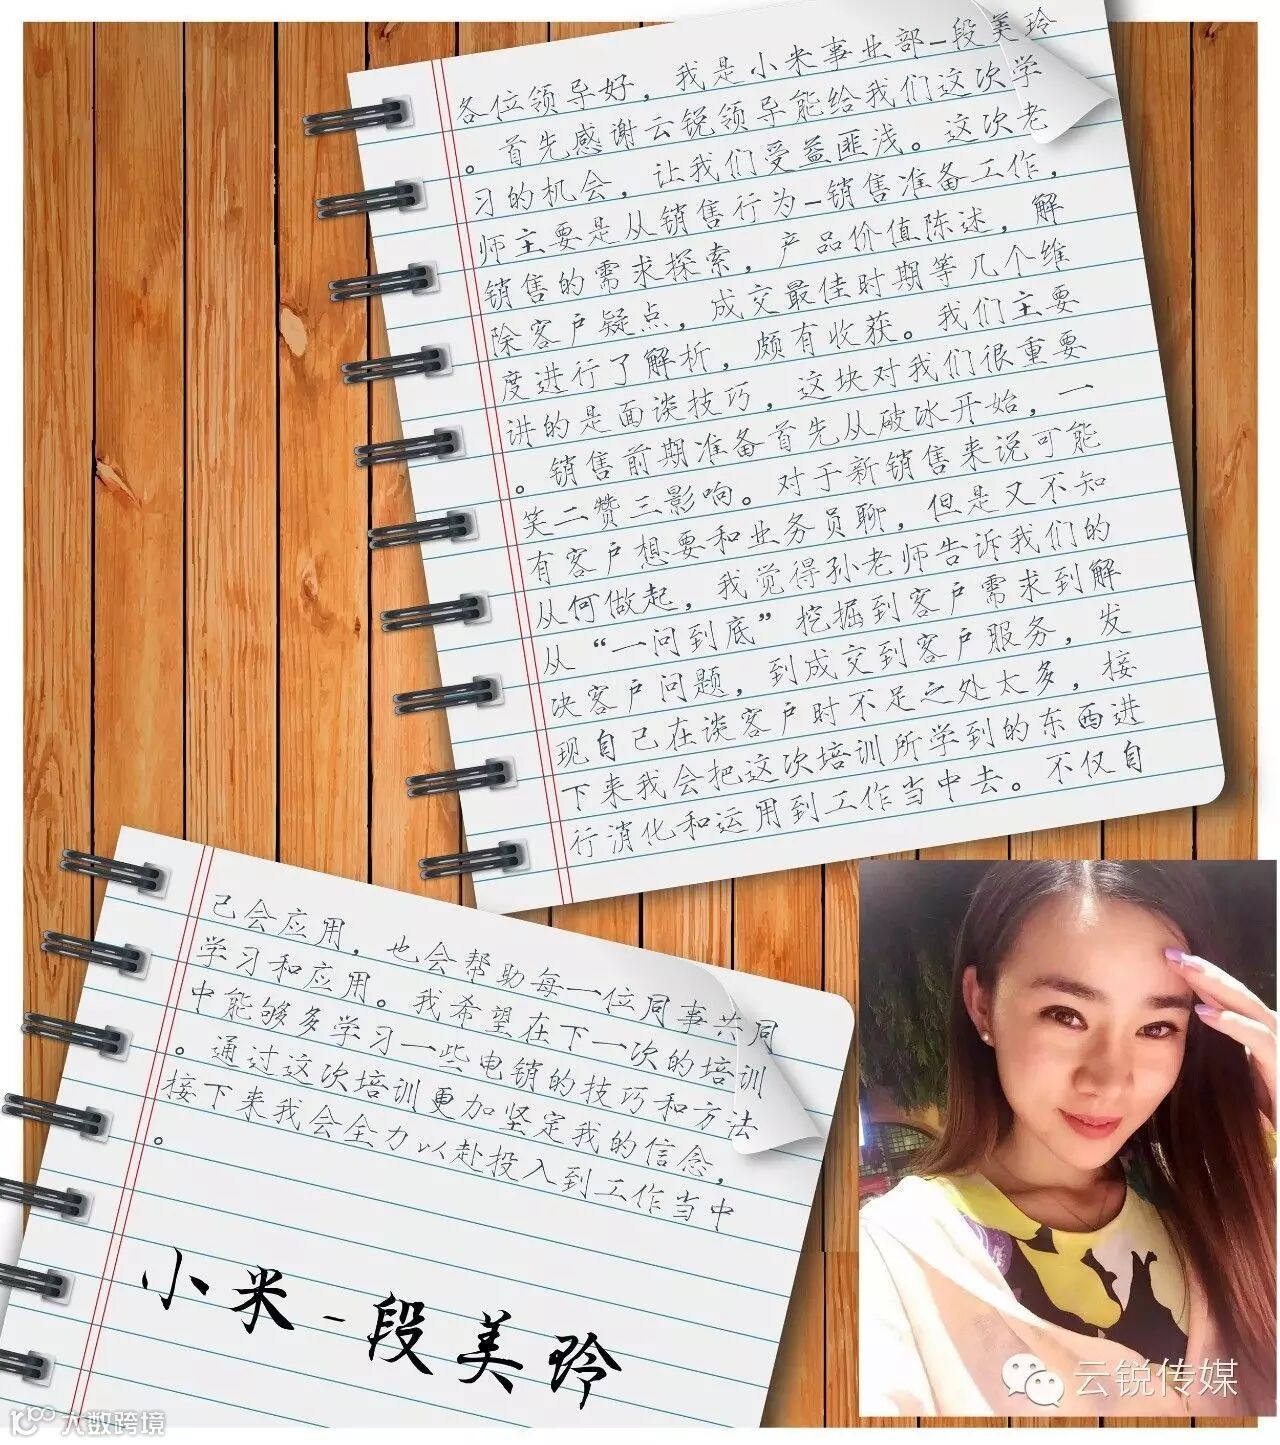 各位领导好，我是小米事业部-段美玲
。首先感谢云锐领导能给我们这次学
习的机会，让我们受益匪浅。这次老
师主要是从销售行为-销售准备工作，
销售的需求探索，产品价值陈述，解
除客户疑点，成交最佳时期等几个维
度进行了解析，颇有收获。我们主要
讲的是面谈技巧，这块对我们很重要
。销售前期准备首先从破冰开始，一
笑二赞三影响。对于新销售来说可能
有客户想要和业务员聊，但是又不知
从何做起，我觉得孙老师告诉我们的
从“一问到底”挖掘到客户需求到解
决客户问题，到成交到客户服务，发
现自己在谈客户时不足之处太多，接
下来我会把这次培训所学到的东西进
行消化和运用到工作当中去。不仅自
己会应用，也会帮助每一位同事共同
学习和应用。我希望在下一次的培训
中能够多学习一些电销的技巧和方法
。通过这次培训更加坚定我的信念，
接下来我会全力以赴投入到工作当中
。
小米-段美玲
云锐传媒
大数跨境